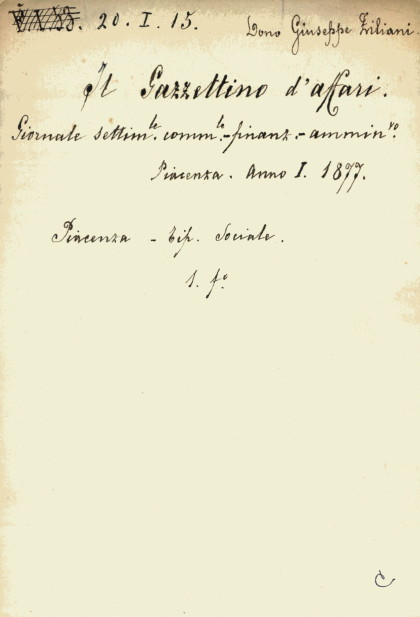 20. I. 15. Dono Giuseppe Ziliani.
Il Gazzettino d'affari.
Giornale settim.le comm.le-finanz.-ammin.vo
Piacenza. Anno I. 1877.
Piacenza - Tip. Sociale.
1. f.o
C